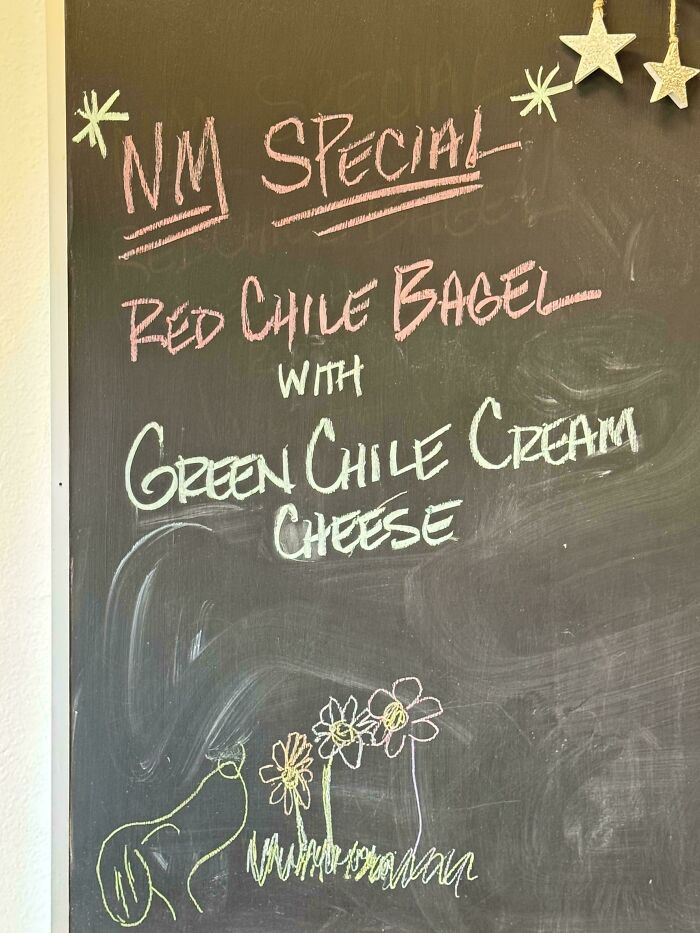 *NM SPECIAL*
RED CHILE BAGEL
WITH
GREEN CHILE CREAM
CHEESE